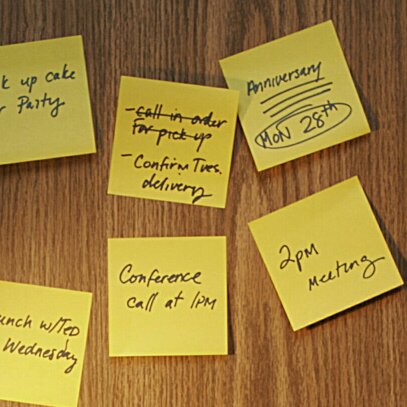 k up cake
r Party
- call in order
for pick up
- Confirm Tues.
delivery
Anniversary
MON 28th
Conference
call at 1PM
2pm
Meeting
unch w/TED
Wednesday